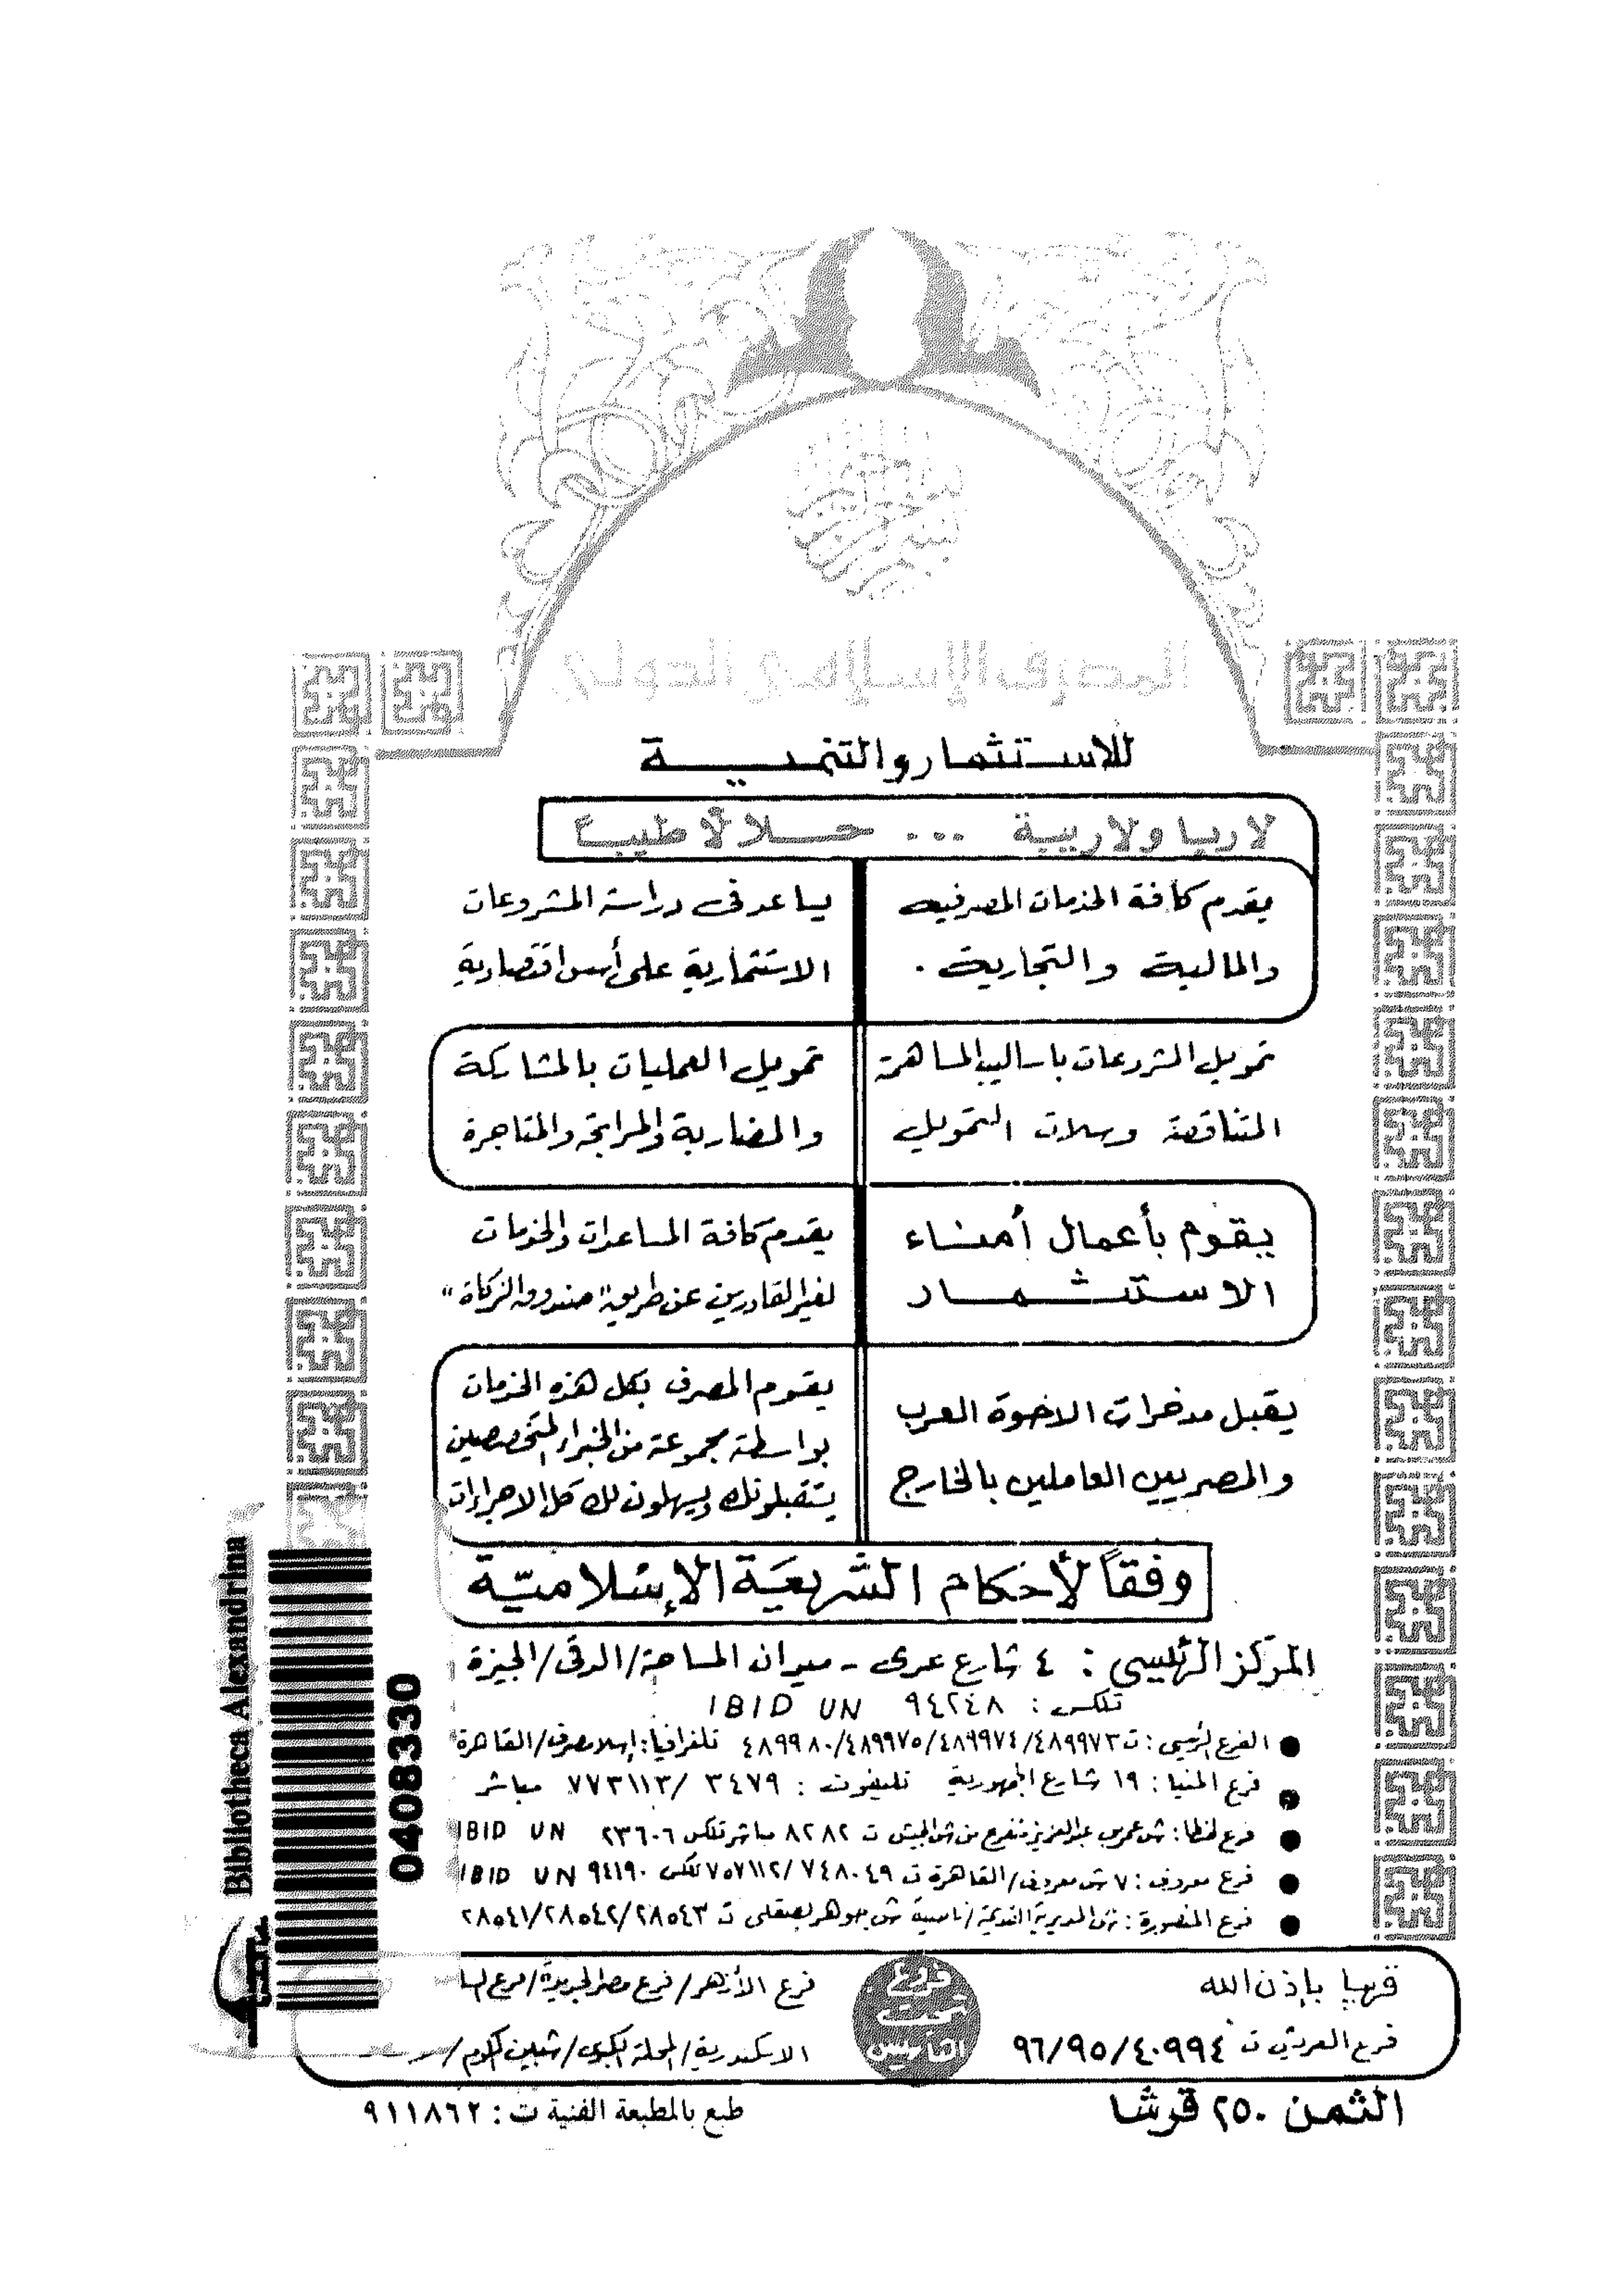 بسم الله الرحمن الرحيم
المصرف الإسلامي الدولي
للاستثمار والتنمية
لا ربا ولا ريبة ... حلالاً طيباً
يقدم كافة الخدمات المصرفية
والمالية والتجارية .
يساعد في دراسة المشروعات
الاستثمارية على أسس اقتصادية
تمويل المشروعات بأساليب المساهمة
المتناقصة وسلات التمويل
تمويل العمليات بالمشاركة
والمضاربة والمرابحة والمتاجرة
يقوم بأعمال أمناء
الاستثمار
يقدم كافة المساعدات والخدمات
لغير القادرين عن طريق "صندوق الزكاة"
يقبل مدخرات الاخوة العرب
والمصريين العاملين بالخارج
يقوم المصرف بكل هذه الخدمات
بواسطة مجموعة من الخبراء المتخصصين
يستقبلونك ويسهلون لك كل الاجراءات
وفقاً لأحكام الشريعة الإسلامية
المركز الرئيسى : ٤ شارع عدى - ميدان المساحة/الدقى/الجيزة
تلكس : ٩٤٢٤٨ IBID UN
● الفرع الرئيسى : ت ٤٨٩٩٧٣/٤٨٩٩٧٤/٤٨٩٩٧٥/٤٨٩٩٨٠ تلغرافيا: إسلامصرف/القاهرة
● فرع المنيا : ١٩ شارع الجمهورية تليفون : ٣٤٧٩ /٧٧٣١١٣ مباشر
● فرع طنطا: ش عمر بن عبدالعزيز متفرع من ش الجيش ت ٨٢٨٢ مباشر تلكس ٢٣٦٠٦ IBID UN
● فرع معروف : ٧ ش معروف/القاهرة ت ٧٤٨٠٤٩/٧٥٧١١٢ تلكس ٩٤١٩٠ IBID UN
● فرع المنصورة : ش المديرية القديمة/ناصية ش جوهر الصقلى ت ٢٨٥٤٣/٢٨٥٤٢/٢٨٥٤١
قريبا بإذن الله
فرع العريش ت ٤٠٩٩٤/٩٥/٩٦
فروع
تحت
التأسيس
فرع الأزهر/فرع مصر الجديدة/فرع
الاسكندرية/المحلة الكبرى/شبين الكوم/
الثمن ٢٥٠ قرشا
طبع بالمطبعة الفنية ت : ٩١١٨٦٢
Bibliotheca Alexandrina
0408330